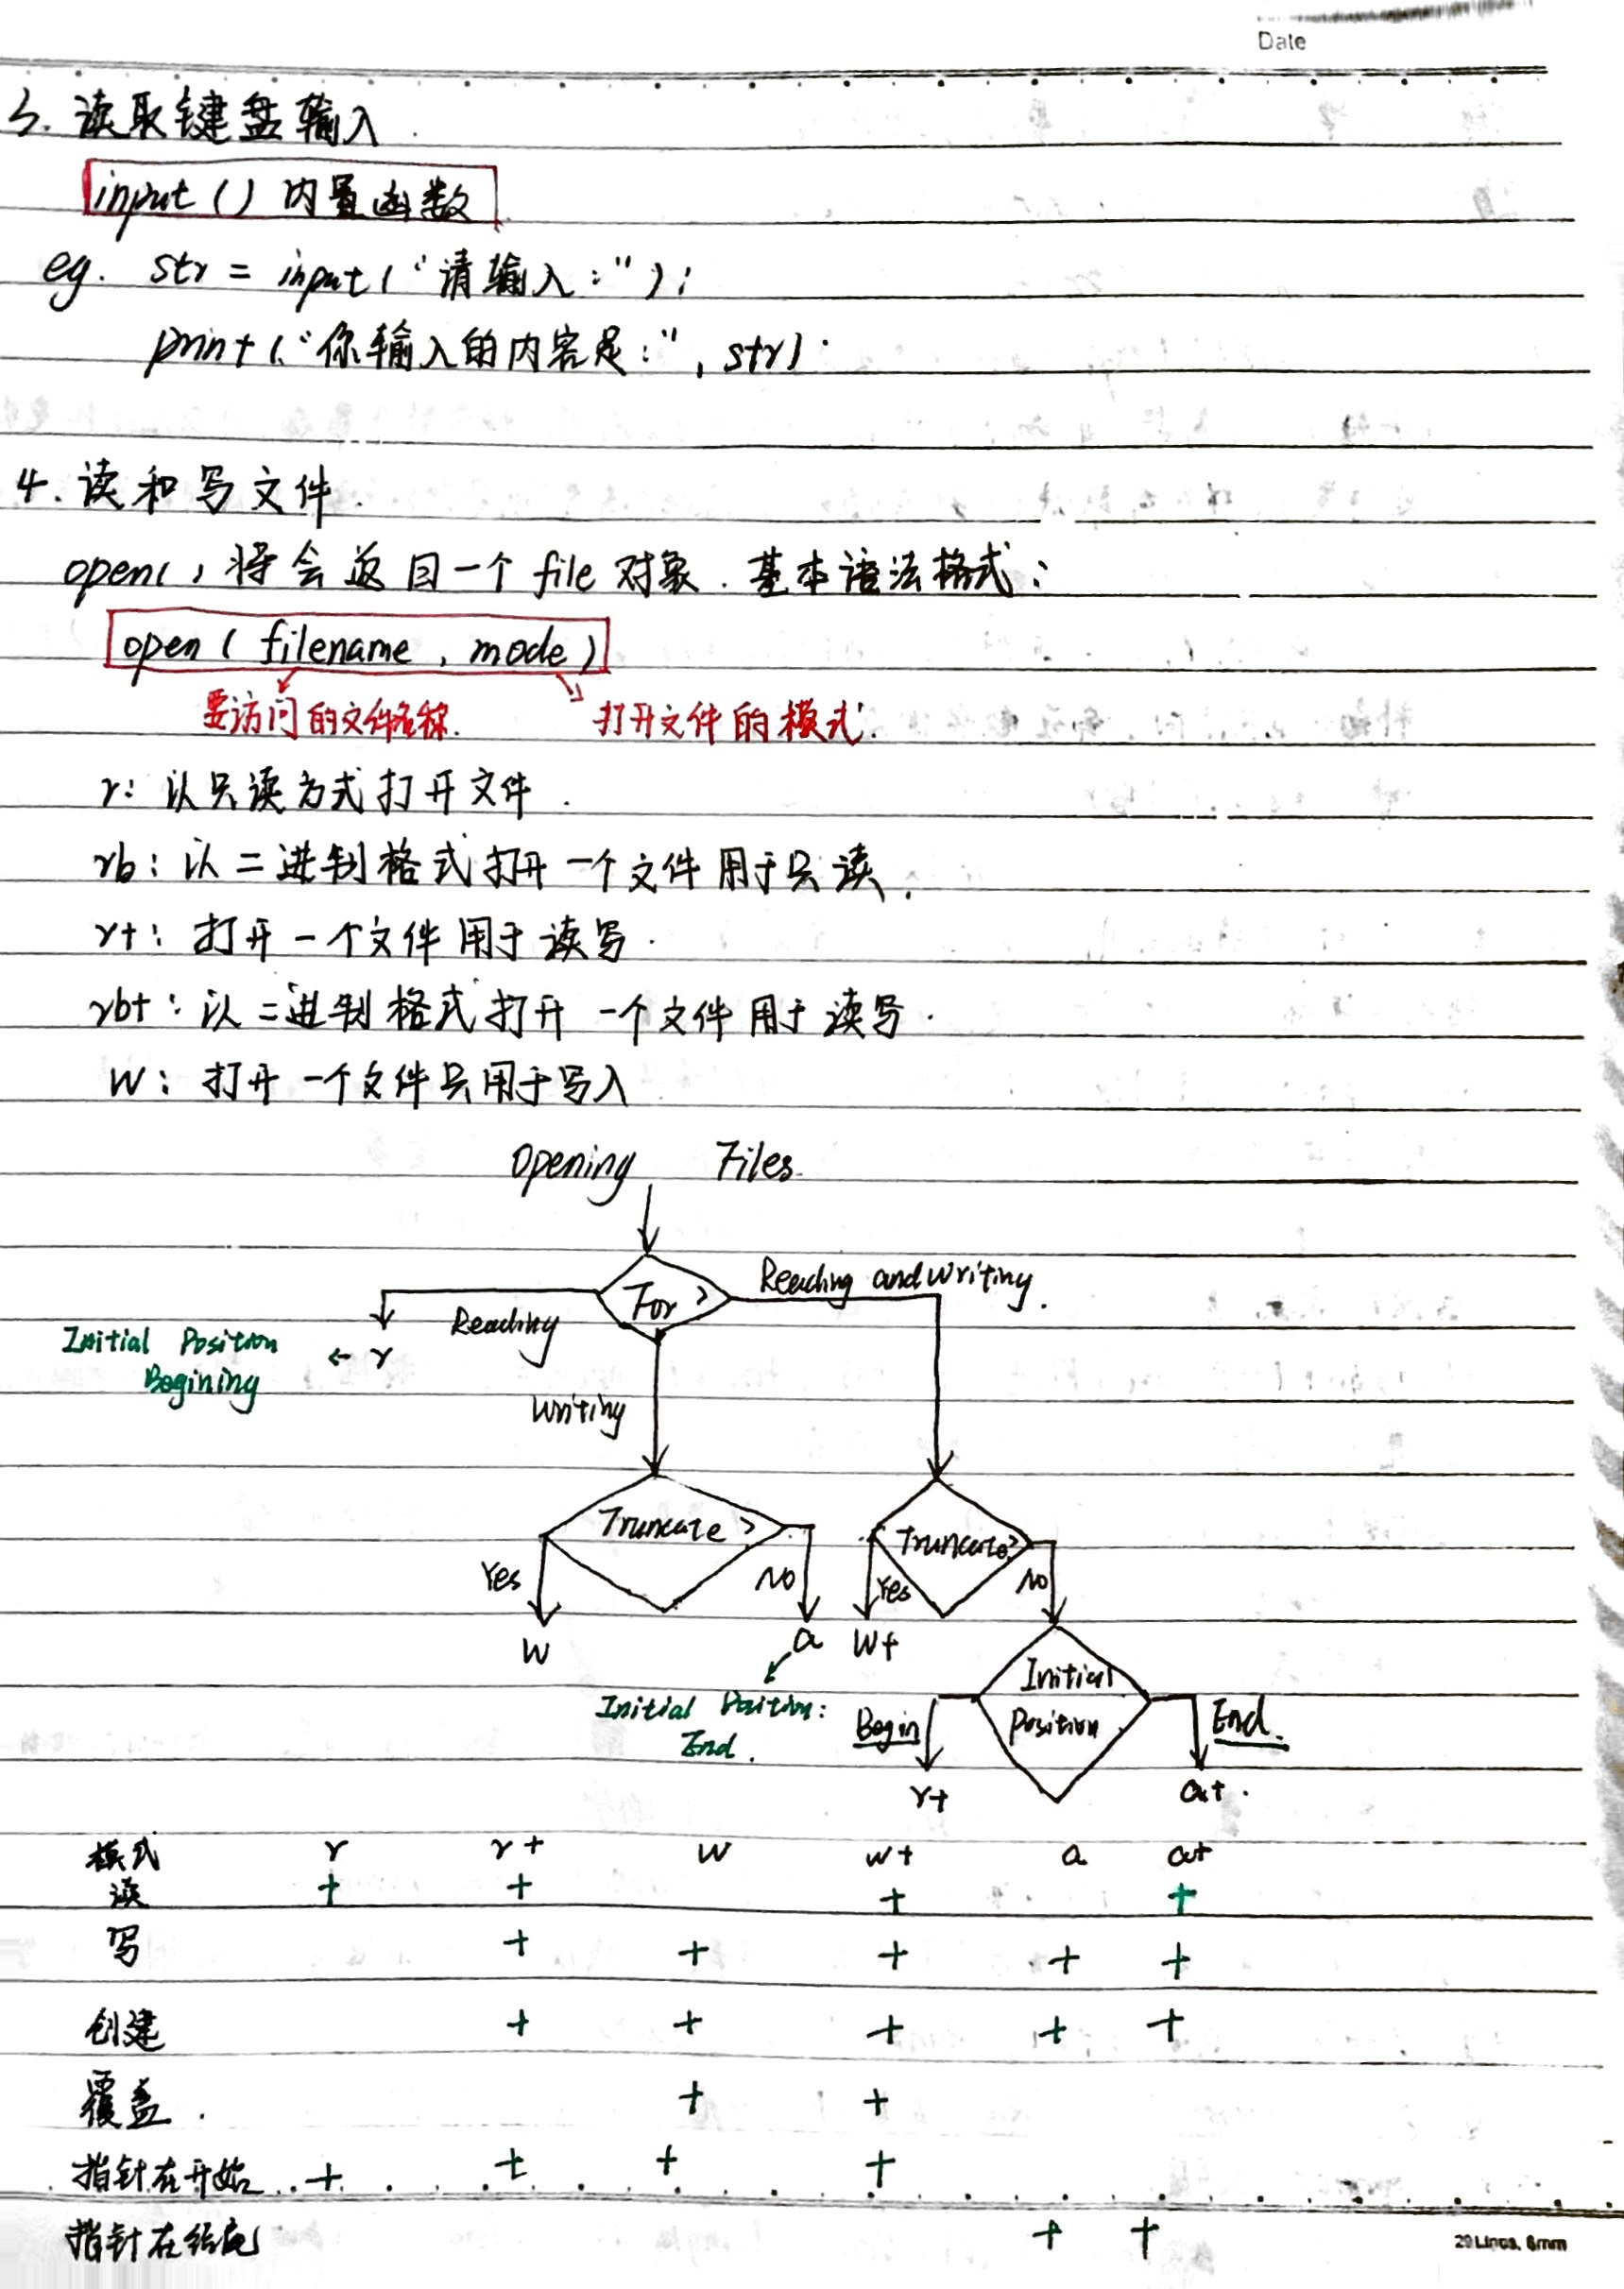 Date
3. 读取键盘输入
input () 内置函数
eg. str = input ("请输入:");
print ("你输入的内容是:", str).
4. 读和写文件.
open(),将会返回一个 file 对象. 基本语法格式:
open ( filename , mode )
要访问的文件名称. 打开文件的模式.
r: 以只读方式打开文件.
rb: 以二进制格式打开一个文件用于只读.
r+: 打开一个文件用于读写.
rb+: 以二进制格式打开一个文件用于读写.
w: 打开一个文件只用于写入
Opening Files
For ? Reading and Writing.
Reading
Initial Position ← r
Begining
Writing
Truncate ? Truncate?
Yes No Yes No
w a w+
Initial Position
Initial Position:
End.
Begin End.
r+ a+.
模式 r r+ w w+ a a+
读 + + + +
写 + + + + +
创建 + + + + +
覆盖. + +
指针在开始 + + + +
指针在结尾 + +
29 Lines, 8mm